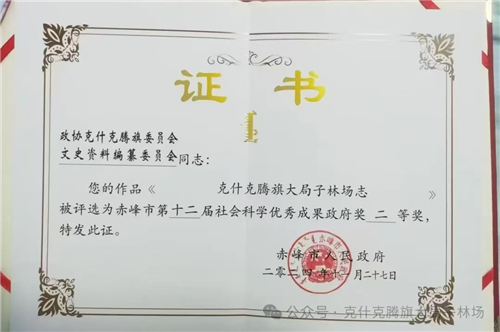 证书
政协克什克腾旗委员会
文史资料编纂委员会同志：
您的作品《 克什克腾旗大局子林场志
被评选为赤峰市第十二届社会科学优秀成果政府奖 二 等奖，
特发此证。
赤峰市人民政府
二〇二四年十 月二十七日
公众号·克什克腾旗大 林场